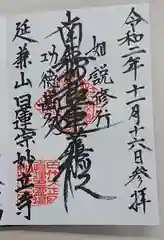 令和二年十一月十六日参拝
如説修行
南無妙法蓮華経
功徳
延兼山日蓮寺妙立寺